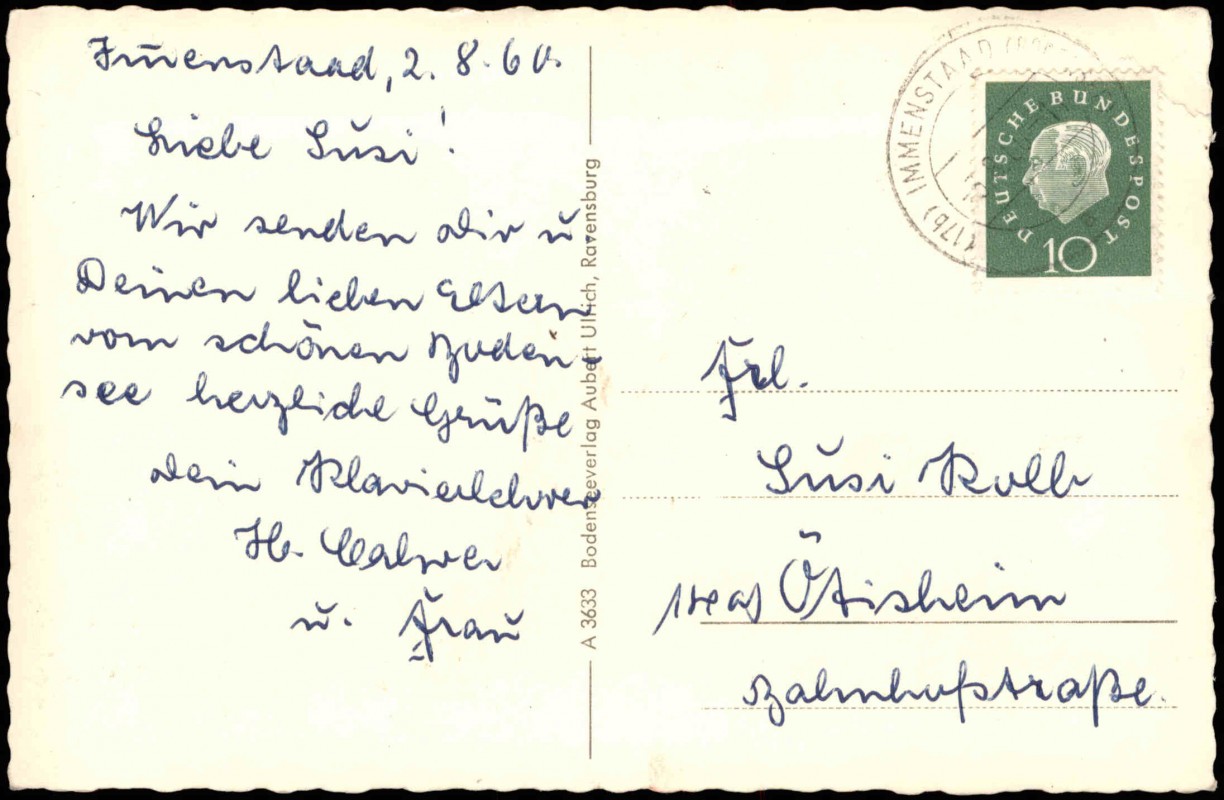 Immenstaad, 2. 8. 60.
Liebe Susi!
Wir senden dir u.
Deinen lieben Eltern
vom schönen Boden-
see herzliche Grüße
dein Klavierlehrer
u. Frau
A 3633 Bodenseeverlag Aubert Ullrich, Ravensburg
(17b) IMMENSTAAD
DEUTSCHE BUNDESPOST
10
Frl.
Susi Kolb
Ötisheim
Bahnhofstraße.